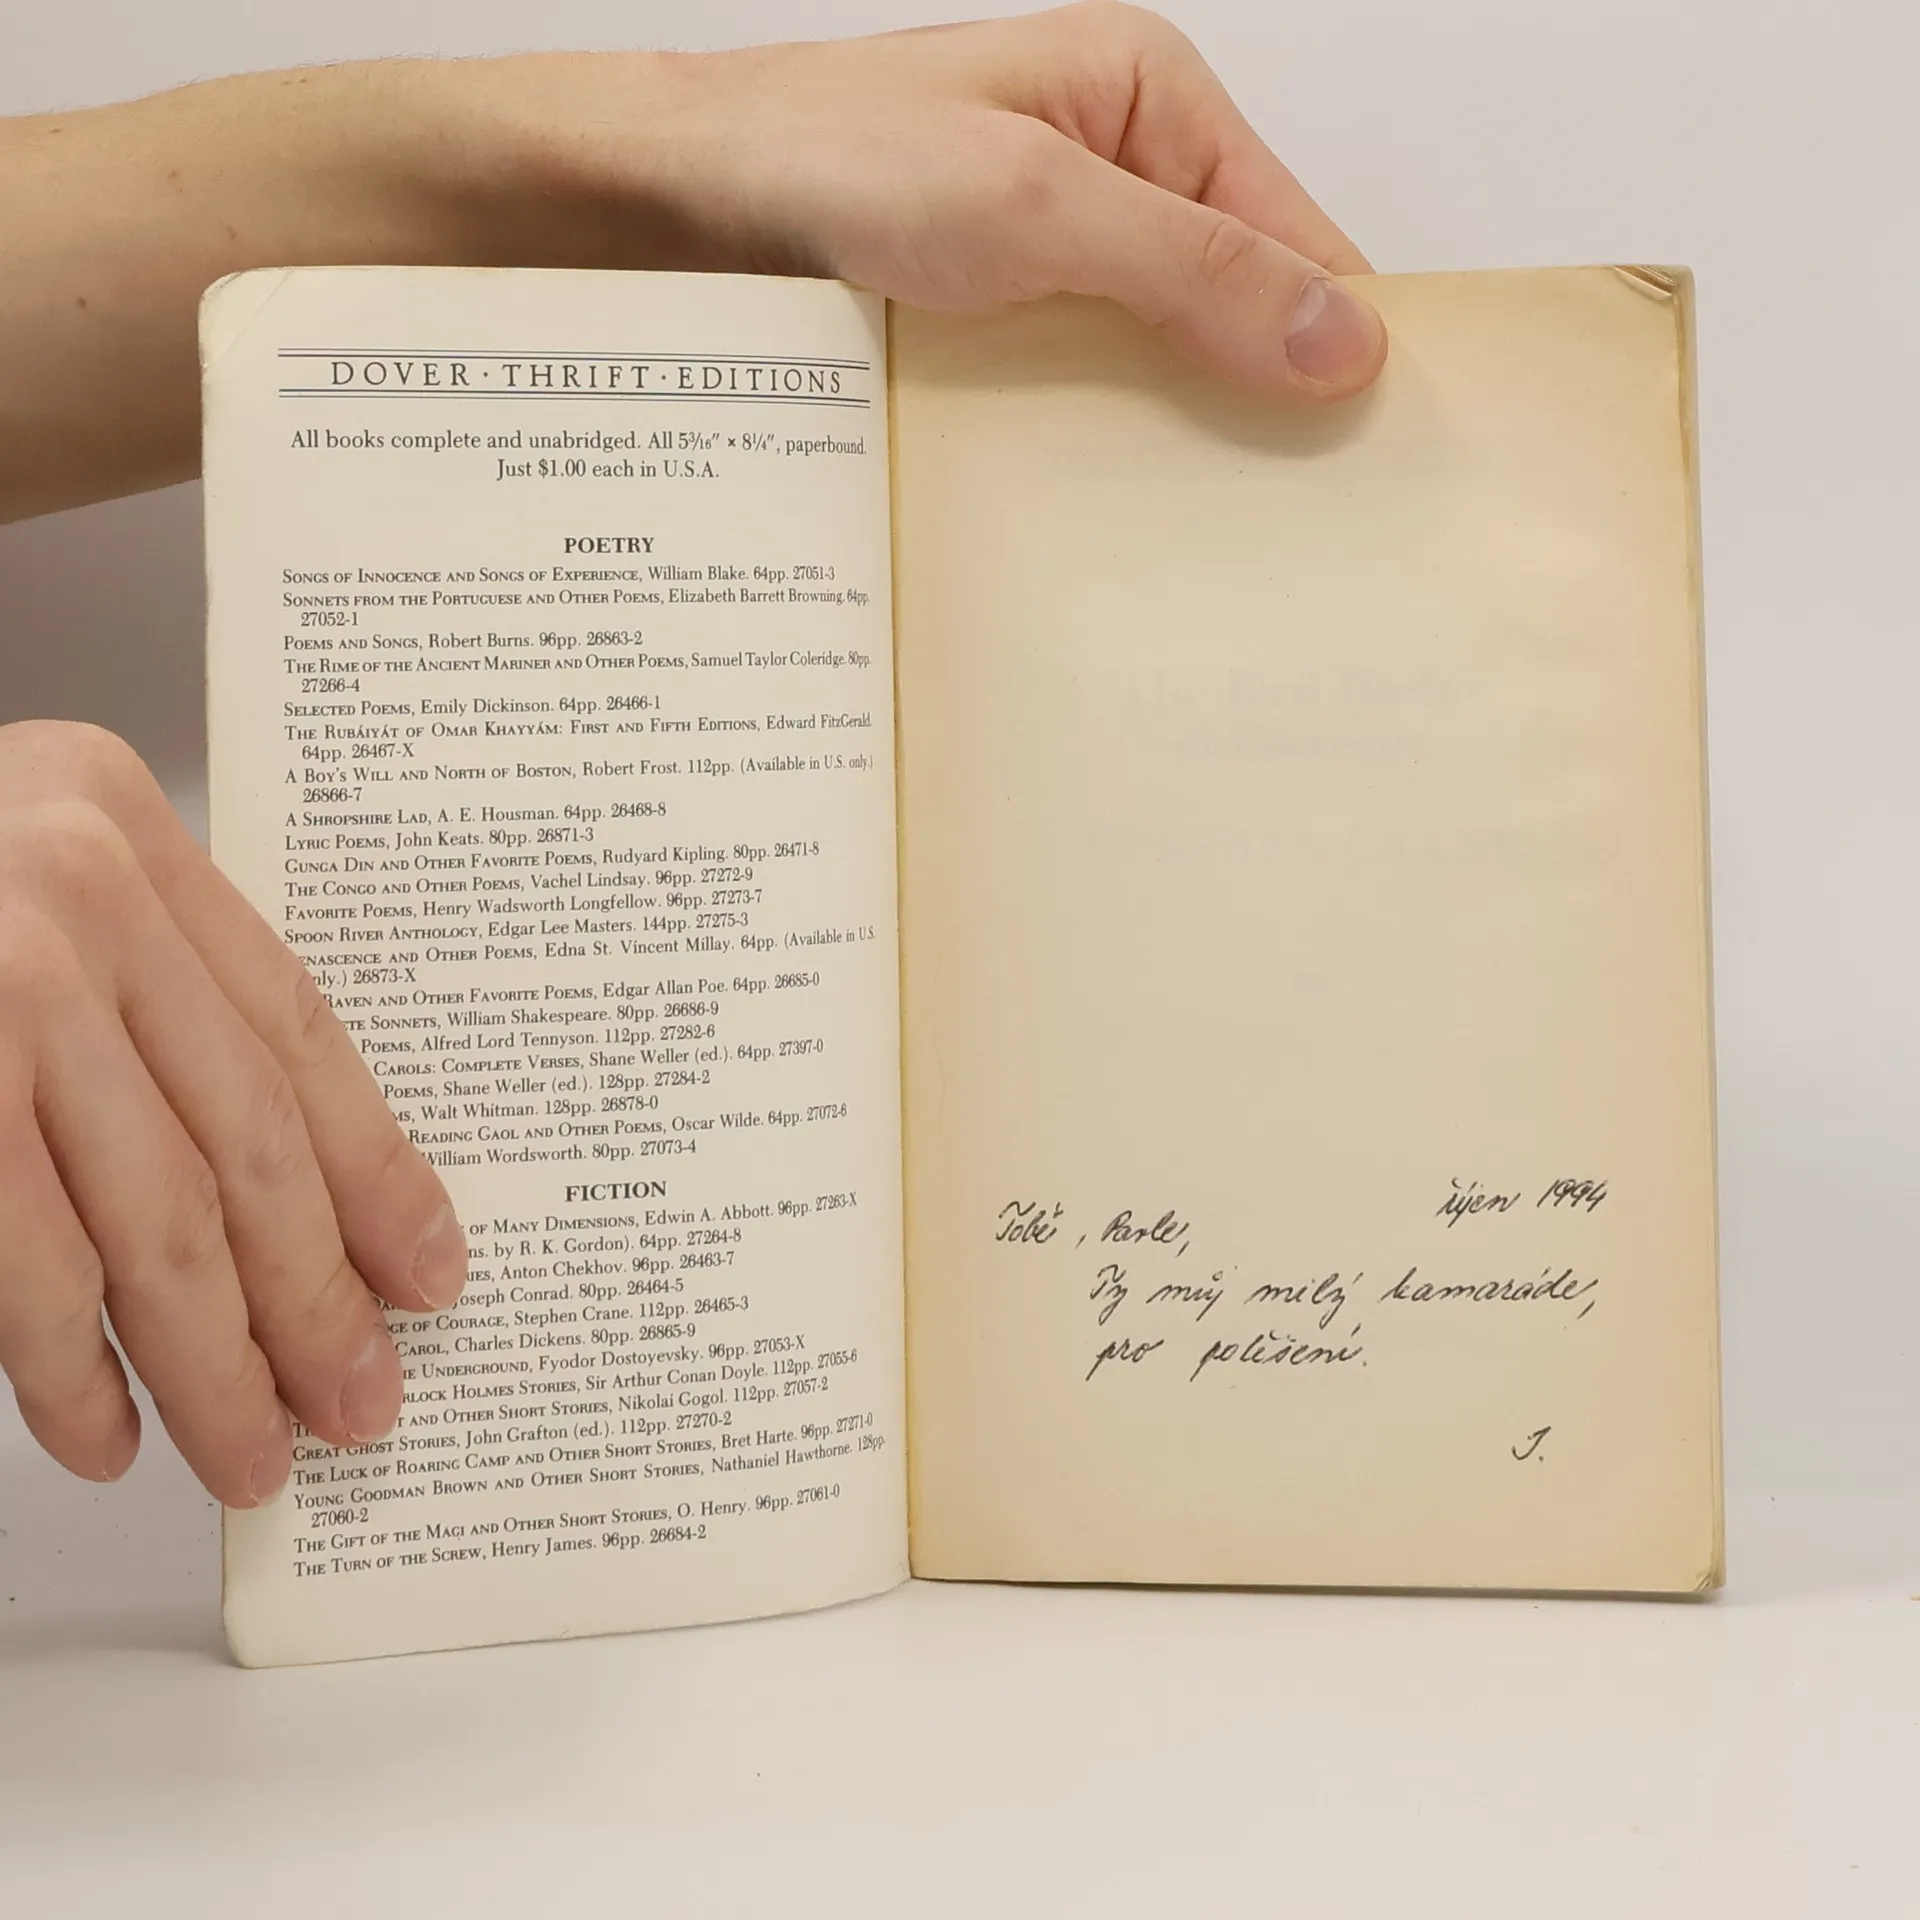 DOVER · THRIFT · EDITIONS
All books complete and unabridged. All 5³⁄₁₆″ × 8¼″, paperbound.
Just $1.00 each in U.S.A.
POETRY
SONGS OF INNOCENCE AND SONGS OF EXPERIENCE, William Blake. 64pp. 27051-3
SONNETS FROM THE PORTUGUESE AND OTHER POEMS, Elizabeth Barrett Browning. 64pp.
27052-1
POEMS AND SONGS, Robert Burns. 96pp. 26863-2
THE RIME OF THE ANCIENT MARINER AND OTHER POEMS, Samuel Taylor Coleridge. 80pp.
27266-4
SELECTED POEMS, Emily Dickinson. 64pp. 26466-1
THE RUBÁIYÁT OF OMAR KHAYYÁM: FIRST AND FIFTH EDITIONS, Edward FitzGerald.
64pp. 26467-X
A BOY'S WILL AND NORTH OF BOSTON, Robert Frost. 112pp. (Available in U.S. only.)
26866-7
A SHROPSHIRE LAD, A. E. Housman. 64pp. 26468-8
LYRIC POEMS, John Keats. 80pp. 26871-3
GUNGA DIN AND OTHER FAVORITE POEMS, Rudyard Kipling. 80pp. 26471-8
THE CONGO AND OTHER POEMS, Vachel Lindsay. 96pp. 27272-9
FAVORITE POEMS, Henry Wadsworth Longfellow. 96pp. 27273-7
SPOON RIVER ANTHOLOGY, Edgar Lee Masters. 144pp. 27275-3
ENASCENCE AND OTHER POEMS, Edna St. Vincent Millay. 64pp. (Available in U.S.
nly.) 26873-X
RAVEN AND OTHER FAVORITE POEMS, Edgar Allan Poe. 64pp. 26685-0
ETE SONNETS, William Shakespeare. 80pp. 26686-9
POEMS, Alfred Lord Tennyson. 112pp. 27282-6
CAROLS: COMPLETE VERSES, Shane Weller (ed.). 64pp. 27397-0
POEMS, Shane Weller (ed.). 128pp. 27284-2
MS, Walt Whitman. 128pp. 26878-0
READING GAOL AND OTHER POEMS, Oscar Wilde. 64pp. 27072-6
William Wordsworth. 80pp. 27073-4
FICTION
OF MANY DIMENSIONS, Edwin A. Abbott. 96pp. 27263-X
ns. by R. K. Gordon). 64pp. 27264-8
RIES, Anton Chekhov. 96pp. 26463-7
Joseph Conrad. 80pp. 26464-5
GE OF COURAGE, Stephen Crane. 112pp. 26465-3
CAROL, Charles Dickens. 80pp. 26865-9
HE UNDERGROUND, Fyodor Dostoyevsky. 96pp. 27053-X
RLOCK HOLMES STORIES, Sir Arthur Conan Doyle. 112pp. 27055-6
T AND OTHER SHORT STORIES, Nikolai Gogol. 112pp. 27057-2
GREAT GHOST STORIES, John Grafton (ed.). 112pp. 27270-2
THE LUCK OF ROARING CAMP AND OTHER SHORT STORIES, Bret Harte. 96pp. 27271-0
YOUNG GOODMAN BROWN AND OTHER SHORT STORIES, Nathaniel Hawthorne. 128pp.
27060-2
THE GIFT OF THE MAGI AND OTHER SHORT STORIES, O. Henry. 96pp. 27061-0
THE TURN OF THE SCREW, Henry James. 96pp. 26684-2
říjen 1994
Tobě, Pavle,
Ty můj milý kamaráde,
pro potěšení.
J.